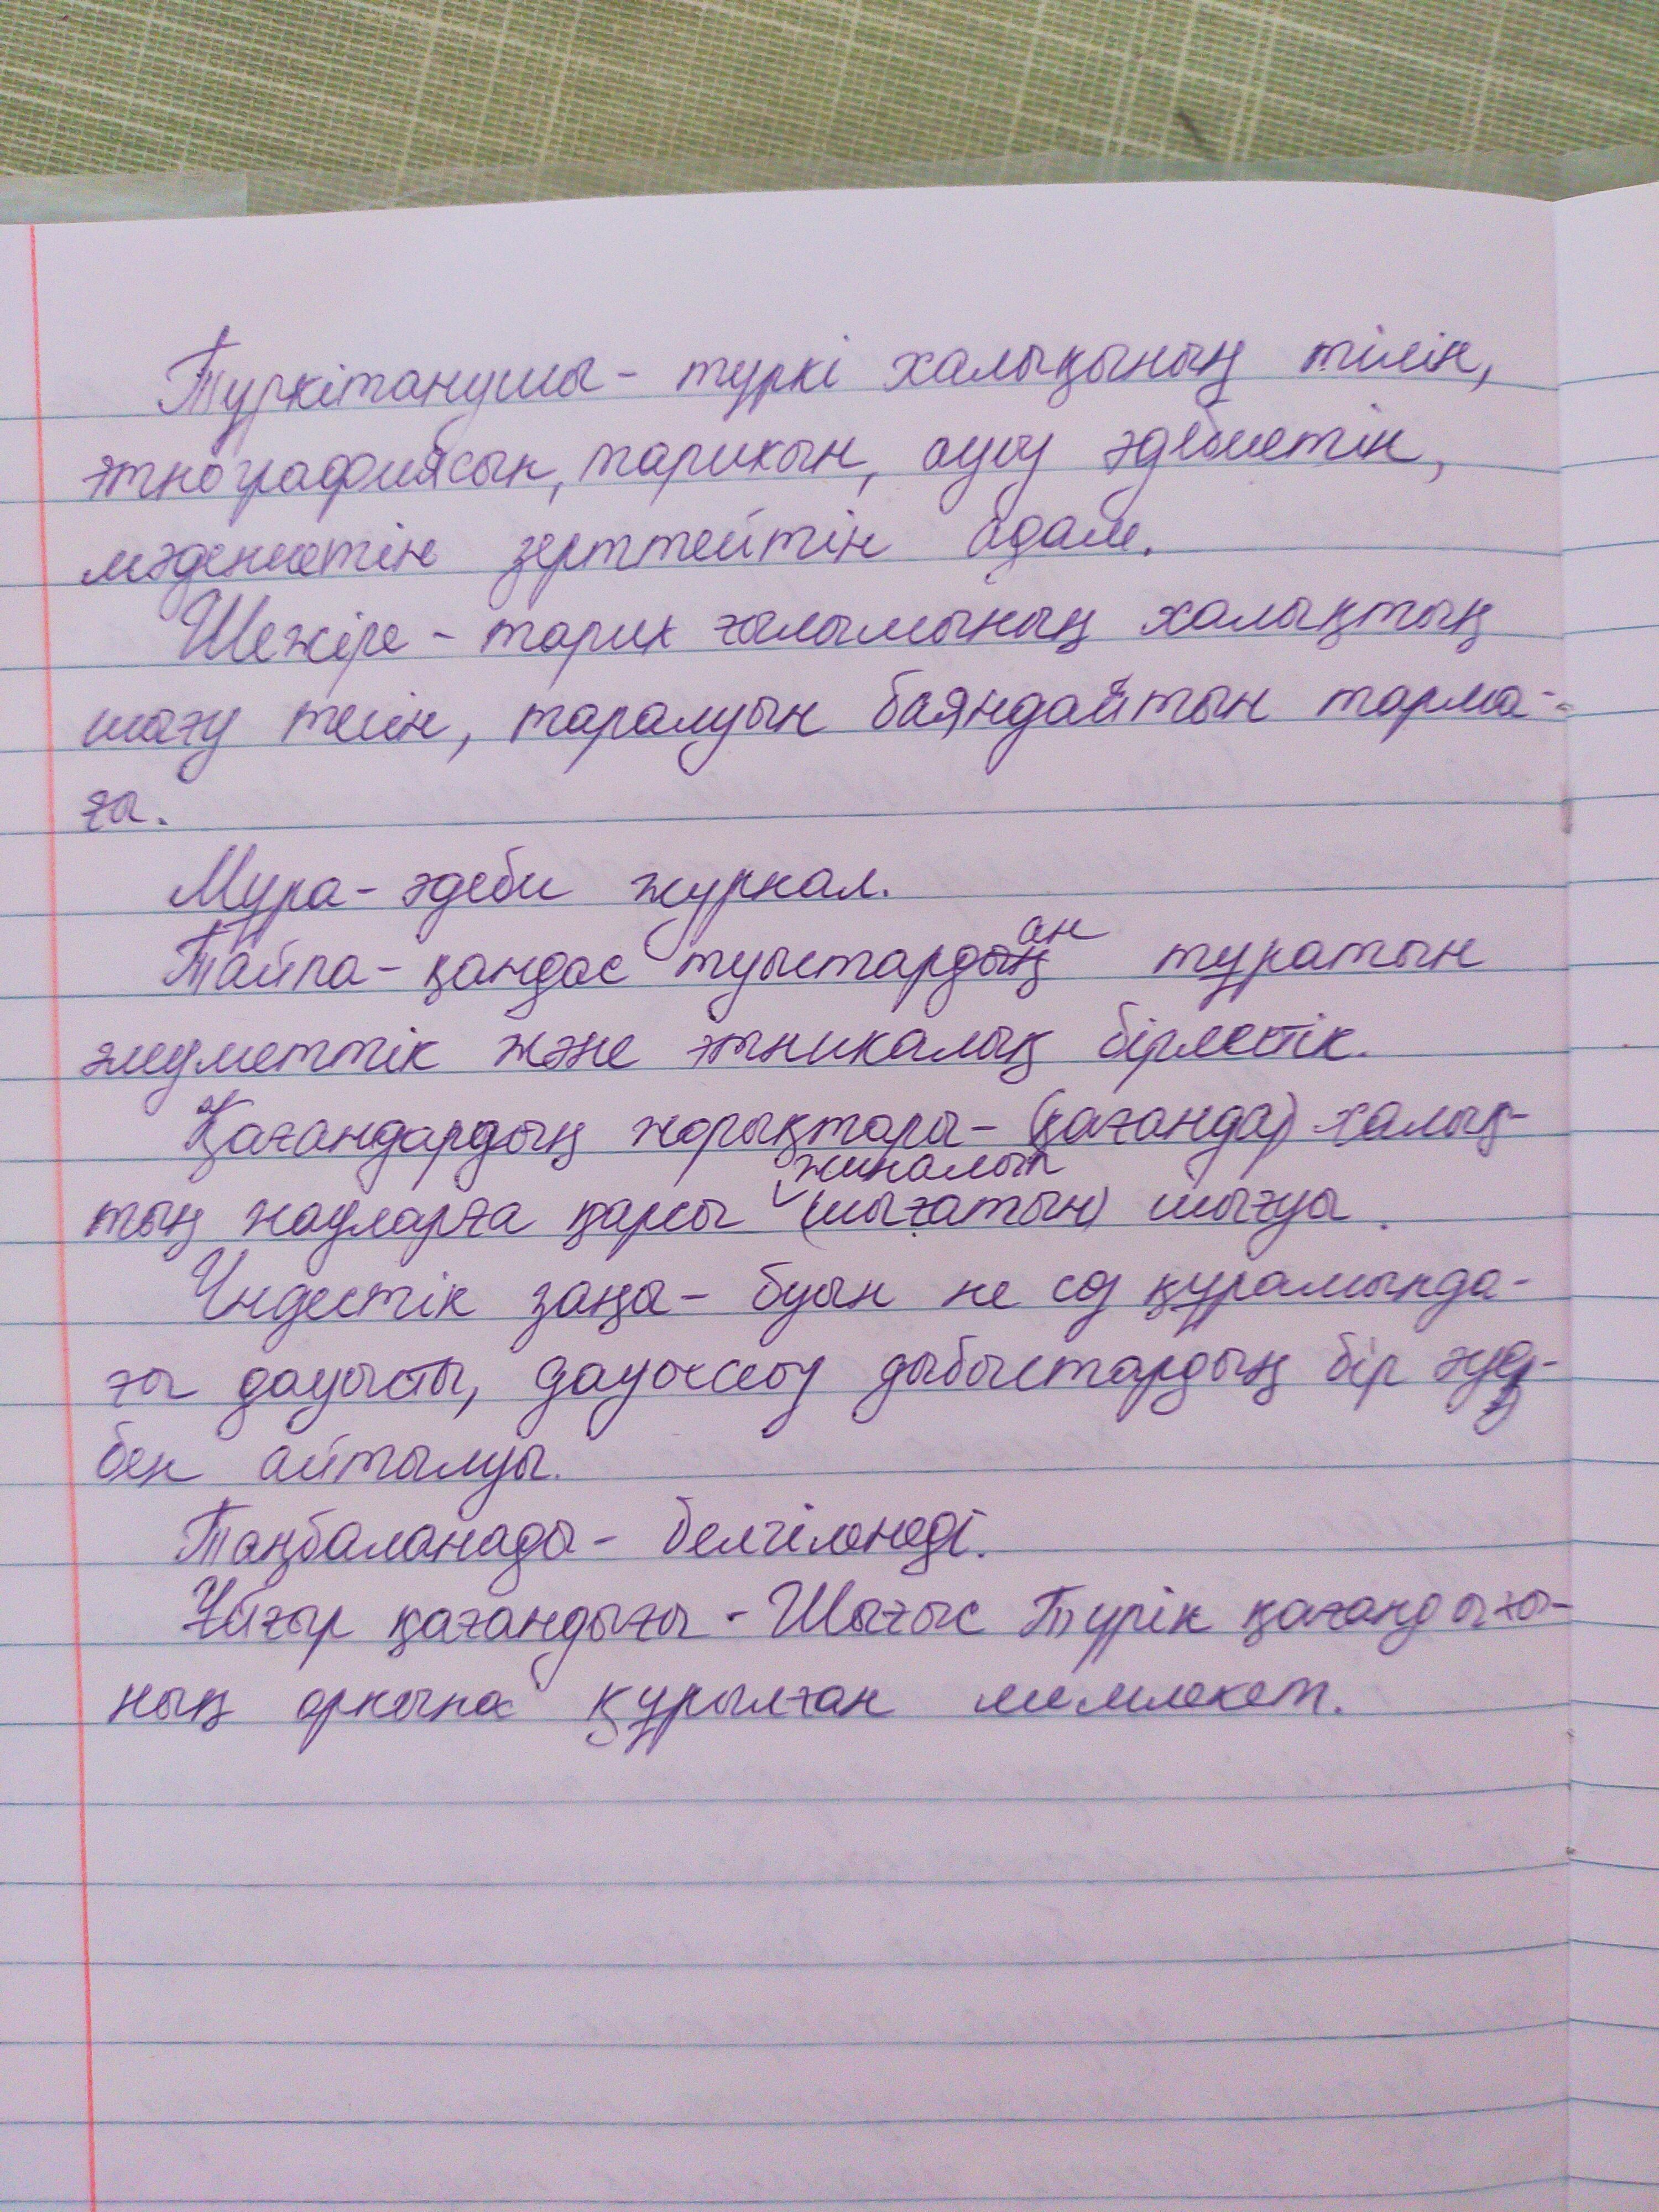 Түркітанушы - түркі халықының тілін,
этнографиясын, тарихын, ауыз әдебиетін,
мәдениетін зерттейтін адам.
Шежіре - тарих ғылымының халықтың
шығу тегін, таралуын баяндайтын тарма-
ғы.
Мұра - әдеби журнал.
Тайпа - қандас туыстардың ан тұратын
әлеуметтік және этникалық бірлестік.
Қағандардың жорықтары - (қағандар) халық-
тың жауларға қарсы жиналып (шығатын) шығуы.
Үндестік заңы - буын не сөз құрамында-
ғы дауысты, дауыссыз дыбыстардың бір әуез-
бен айтылуы.
Таңбаланады - белгіленеді.
Ұйғыр қағандығы - Шығыс Түрік қағандығы-
ның орнына құрылған мемлекет.